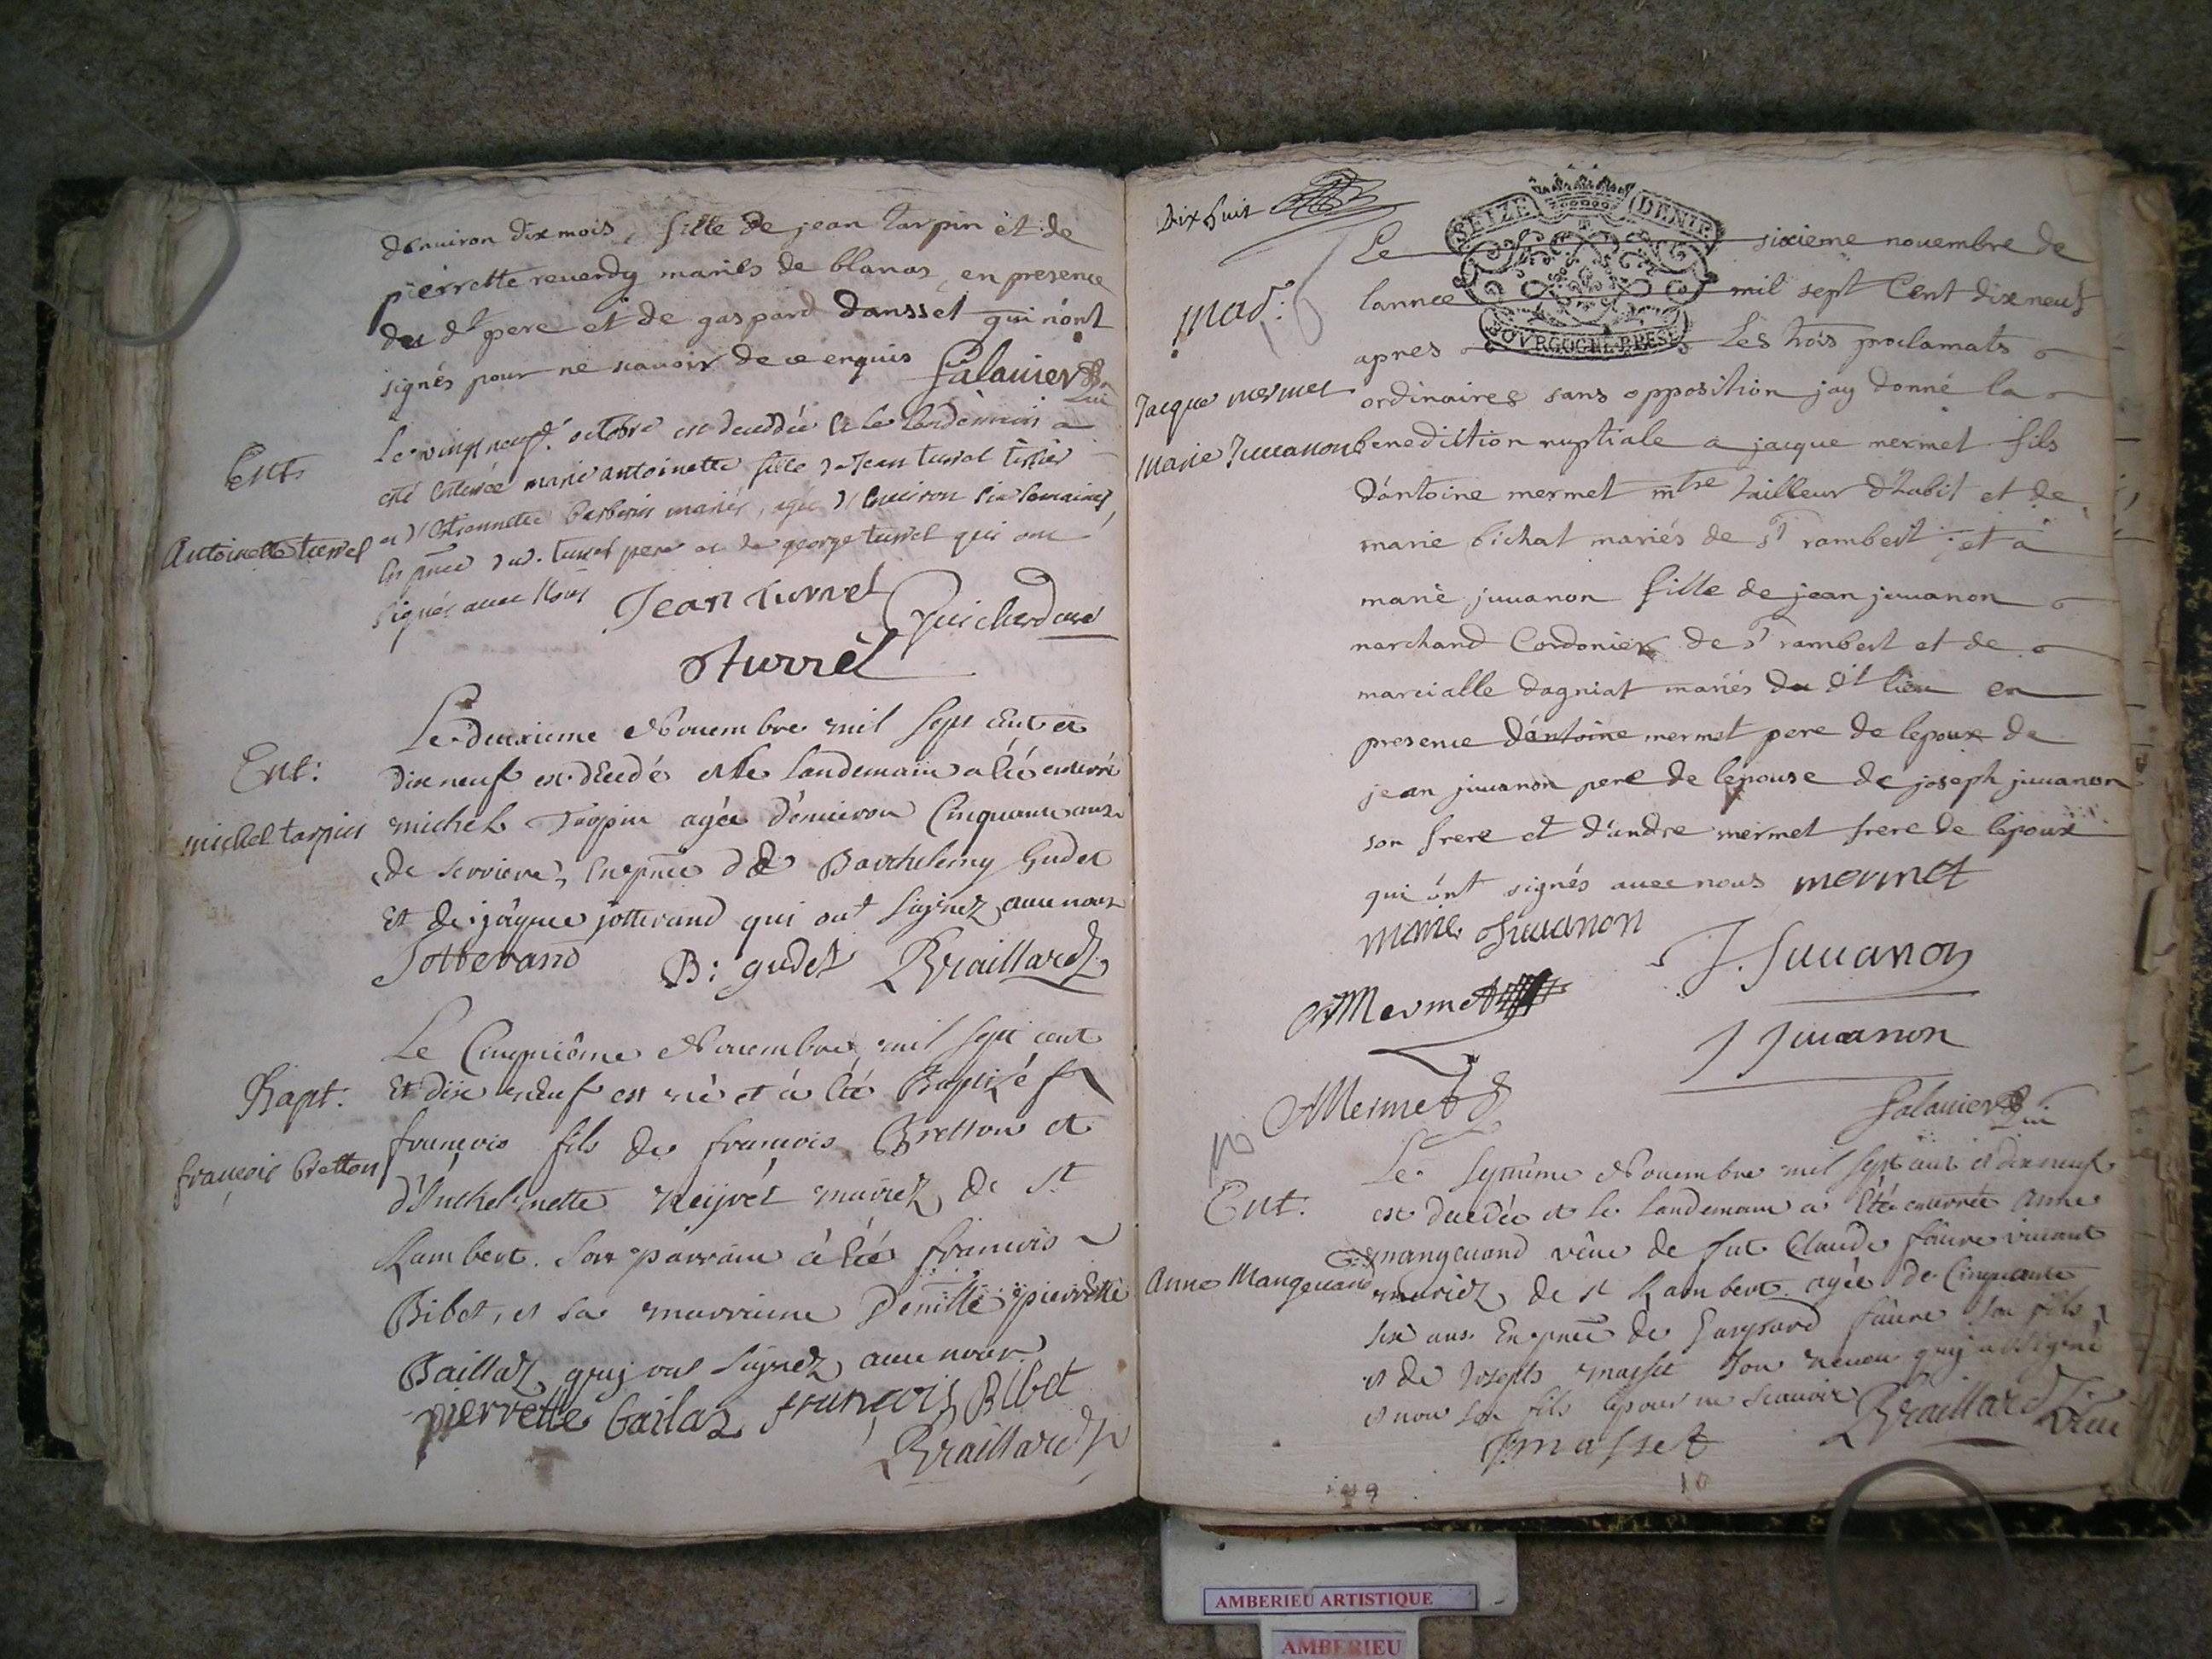 denuiron dix mois, fille de jean tarpin et de
pierrette reuerdy mariés de blanas, en presence
du dt pere et de gaspard dansset qui n'ont
signés pour ne scauoir de ce enquis Salauier
Ent.
Antoinette turrel
Le vingt neuf.e octobre est deceddée & le lendemain a
esté enterrée marie antoinette fille de Jean turrel tissier
et d'Estiennette mariés, agée d'enuiron six semaines,
En pnce dud. turrel pere et de george turrel qui ont
signés auec Nous Jean turrel Guichard curé
G turrel
Ent:
michel tarpin
Le deuxieme Nouembre mil sept cent et
dix neuf est décedé et le landemain a été enterré
michel Tarpin agée d'enuiron Cinquante ans
de serriere, En pnce de Barthelemy Gudet
Et de jâque jotterand qui ont Signez auec nous
Jotterand B: gudet Braillard
Bapt.
françois bretton
Le Cinquiême Nouembre mil sept cent
Et dix neuf est né et a été Baptizé
francois fils de francois Bretton et
mariez de St
Rambert. Son parrain a été francois
Bibet, et sa marraine Demlle pierrette
Baillaz quy ont signez auec nous
pierrette bailaz françois Bibet
Braillard
Dix huit
mar.
Jacque mermet
Marie Juuanon
SEIZE DENIE
BOVRGOGNE BRESS
Le sixieme nouembre de
lannee mil sept Cent dix neuf
apres Les trois proclamats
ordinaires sans opposition jay donné la
benediction nuptiale a jacque mermet fils
d'antoine mermet mtre tailleur d'habit et de
marie bichat mariés de St rambert ; et a
marie juuanon fille de jean juuanon
marchand Cordonier de St rambert et de
marcialle dagniat mariés du dt lieu en
presence d'antoine mermet pere de lepoux de
jean juuanon pere de lépouse de joseph juuanon
son frere et d'andre mermet frere de lépoux
qui ónt signés auec nous mermet
marie Juuanon
J. Juuanon
A Mermet
J Juuanon
A Mermet
Salauier
Ent.
Anne Mangeuand
Le Septième Nouembre mil sept cent et dix neuf
est decedée et le landemain a été enterrée Anne
mangeuand vêue de fut Claude fâure viuant
mariez de st Rambert agée de Cinquante
six ans En pnce de Gaspard fâure son fils
et de Joseph masset son neueu quy a signé
et non son fils pour ne scauoir Braillard Vic
J masset
10